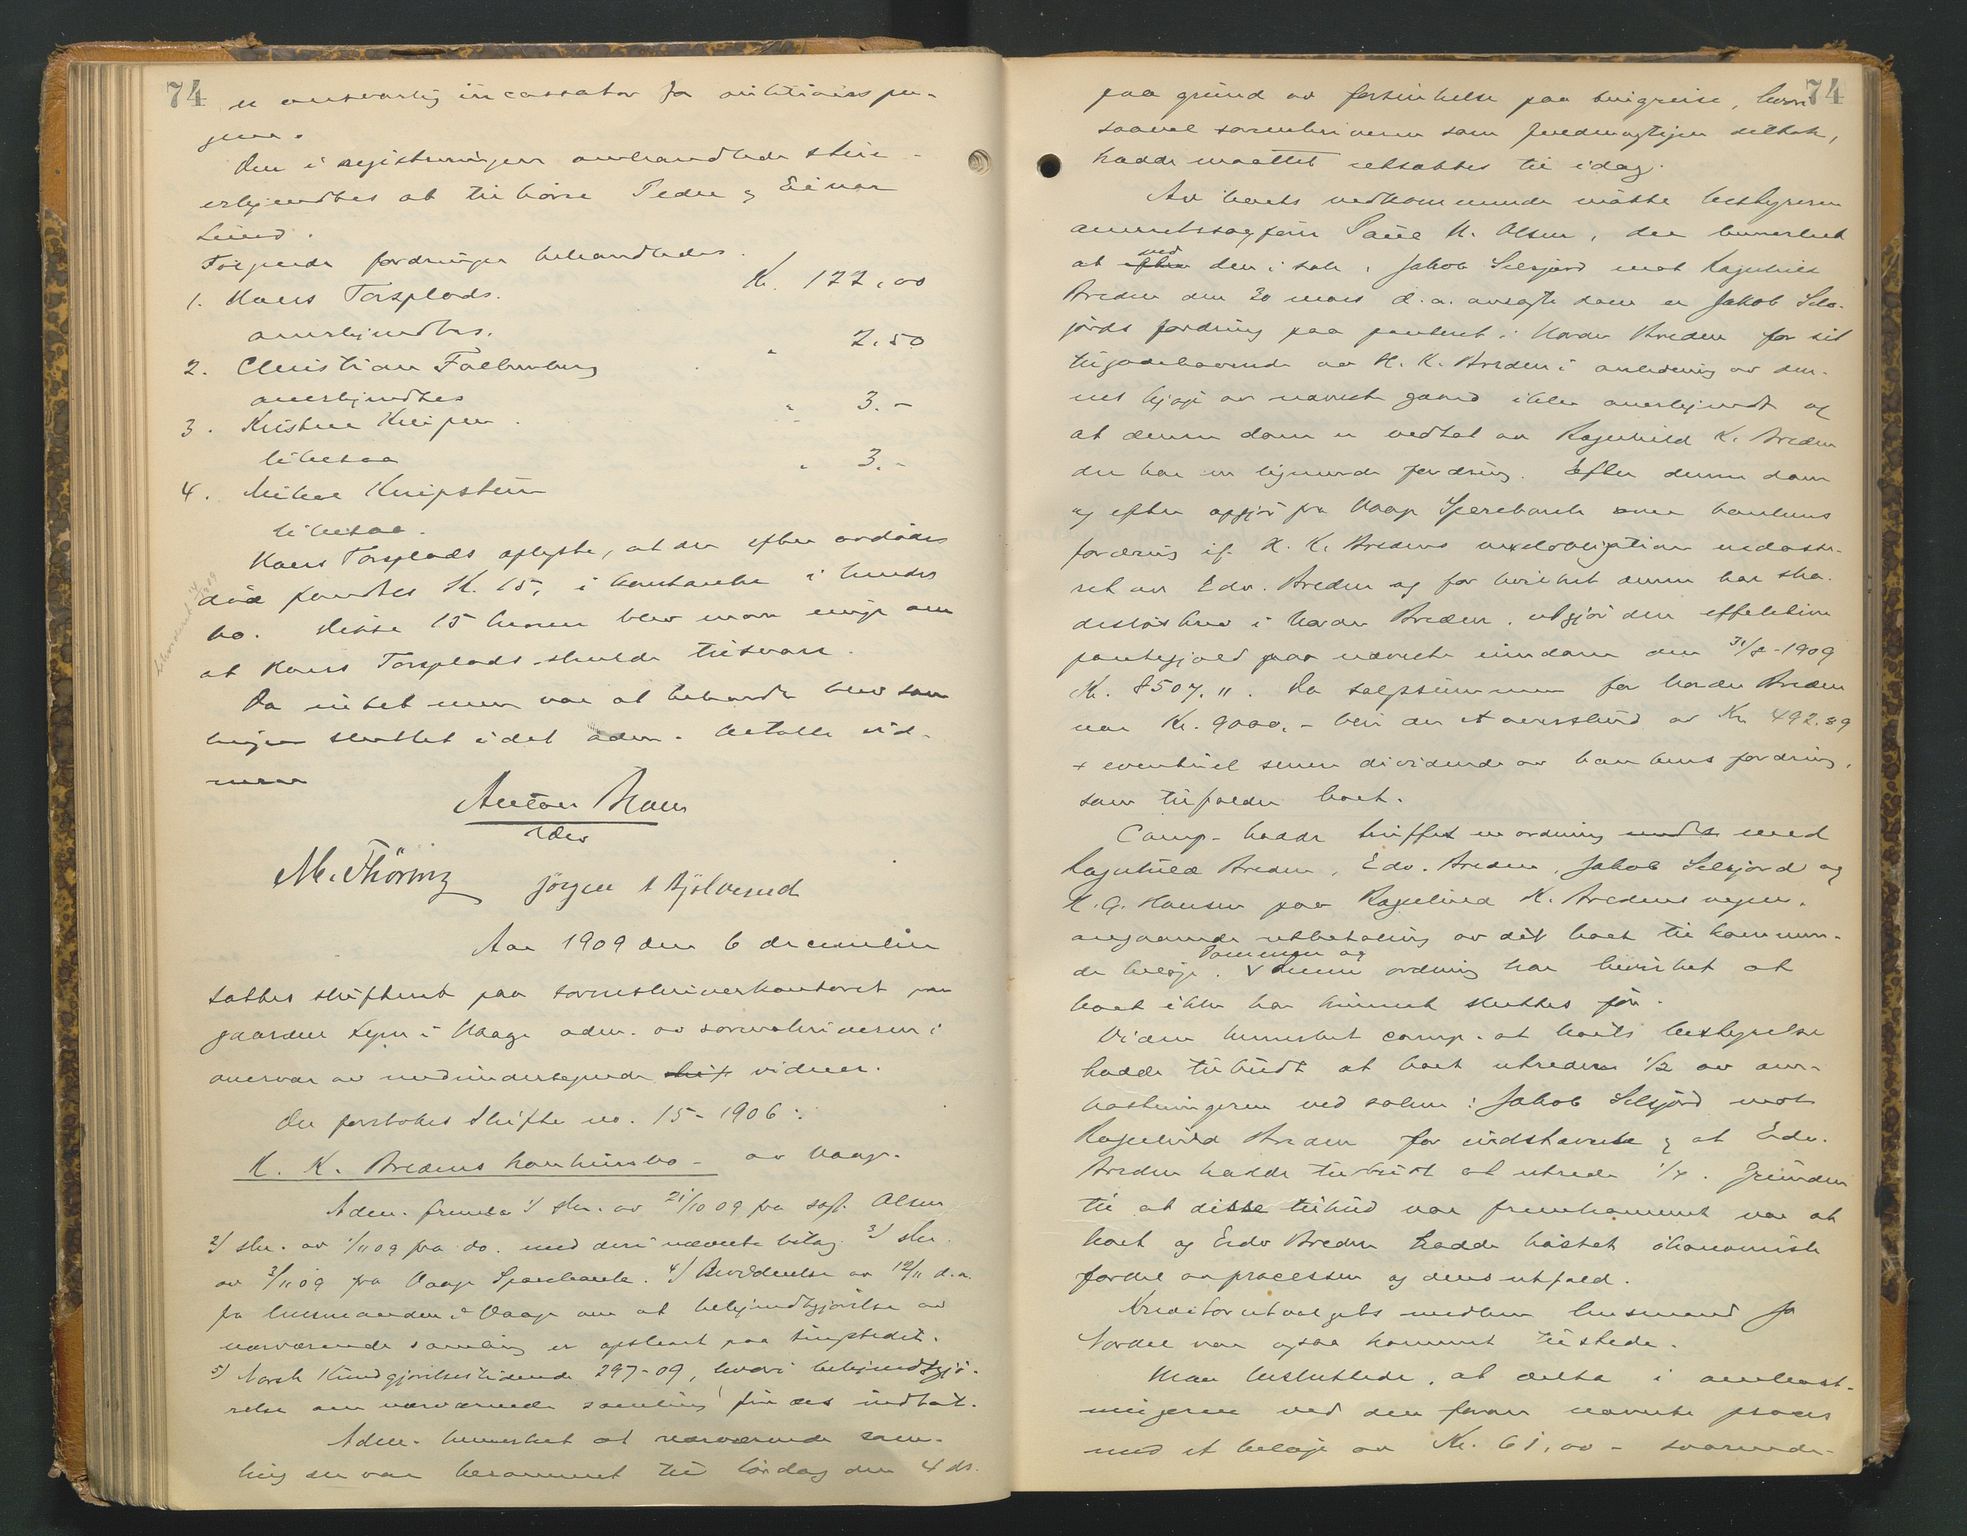 74
er ansvarlig incassator for auktionspen-
gene.
Den i registreringen omhandlede stue
erkjendtes at tilhøre Peder og Einar
Lund.
Følgende fordringer behandledes.
1. Hans Torsplads. Kr. 122,00
anerkjendtes.
2. Christian Falkenberg " 2.50
anerkjendtes
3. Kristine Kleipen. " 3.-
likesaa
4. Mikal Kleipstein " 3.-
likesaa.
Hans Torsplads oplyste, at der efter avdødes
død fandtes Kr. 15, i kontanter i hendes
bo. Disse 15 kroner blev man enige om
at Hans Torsplads skulde tilsvare.
Da intet mer var at behandle blev sam
lingen sluttet idet adm. betalte vid-
nerne
Anton Moen
M. Thöring Jørgen Bjølverud
Aar 1909 den 6 december
sattes skifteret paa sorenskriverkontoret paa
gaarden Lyen i Vaage adm. av sorenskriveren i
overvær av medundertegnede skift vidner.
Der foretokes Skifte no. 15-1906:
K. K. Bredens konkursbo - av Vaage.
Adm. fremla 1) skr. av 21/10 09 fra sagf. Olsen
2) skr. av 1/11 09 fra do. med deri nævnte bilag. 3) skr.
av 3/11 09 fra Vaage Sparebank. 4) Bevidnelse av 12/11 d.a.
fra lensmanden i Vaage om at bekjendtgjørelse av
nærværende samling er opslaaet paa tingstedet.
5) Norsk Kundgjørelsestidende 297-09, hvori bekjendtgjø-
relse om nærværende samling findes indtat.
Adm. bemerket at nærværende sam-
ling der var berammet til lørdag den 4 ds.
74
paa grund av forsinkelse paa tingreise, hvori
saavel sorenskriveren som fuldmægtigen deltok,
hadde maattet utsættes til idag.
Av boets vedkommende møtte bestyreren
overretssagfører Paul N. Olsen, der bemerket
at efter ved den i sak: Jakob Selsjord mot Ragnhild
Breden den 30 mars d.a. avsagte dom er Jakob Sels-
jords fordring paa panteret i Nordre Breden for sit
tilgodehavende av K. K. Breden i anledning av den-
nes kjøp av nævnte gaard ikke anerkjendt og
at denne dom er vedtat av Ragnhild K. Breden
der har en lignende fordring. Efter denne dom
og efter opgjør fra Vaage Sparebank over bankens
fordring if. K. K. Bredens vexelobligation endosse-
ret av Edv. Breden og for hvilket denne har ska-
desløsbrev i Nordre Breden, utgjør den effektive
pantegjæld paa nævnte eiendom den 31/8-1909
Kr. 8507.11. Da salgssummen for Nordre Breden
var Kr. 9000,- blir der et overskud av Kr. 492.89
+ eventuel senere dividende av bankens fordring,
som tilfalder boet.
Comp. hadde truffet en ordning med
Ragnhild Breden, Edv. Breden, Jakob Selsjord og
K. G. Hansen paa Ragnhild K. Bredens vegne,
angaaende utbetaling av det boet tilkommen-
de beløp. Dommen og denne ordning har bevirket at
boet ikke har kunnet sluttes før.
Videre bemerket comp. at boets bestyrelse
hadde tilbudt at boet utreder 1/2 av om-
kostningerne ved saken: Jakob Selsjord mot
Ragnhild Breden for indstævnte og at Edv.
Breden hadde tilbudt at utrede 1/4. Grunden
til at disse tilbud var fremkommet var at
boet og Edv Breden hadde høstet økonomisk
fordel av processen og dens utfald.
Kreditorutvalgets medlem lensmand Jo
Nordal var ogsaa kommet tilstede.
Man besluttede, at delta i omkost-
ningerne ved den foran nævnte proces
med et beløp av Kr. 61,00 - svarende-